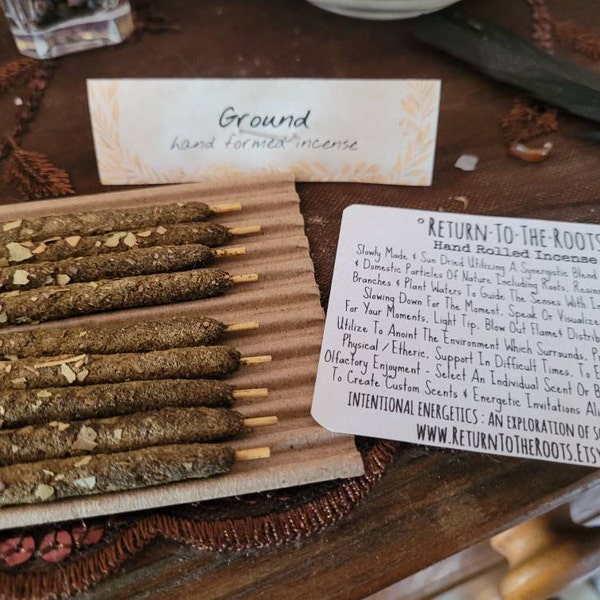 Ground
hand formed incense
° RETURN-TO-THE-ROOTS
Hand Rolled Incense
Slowly Made & Sun Dried Utilizing A Synergistic Blend
& Domestic Particles Of Nature Including Roots, Resins
Branches & Plant Waters To Guide The Senses With
Slowing Down For The Moment. Speak Or Visualize
For Your Moments, Light Tip, Blow Out Flame & Distrib
Utilize To Anoint The Environment Which Surrounds,
Physical / Etheric, Support In Difficult Times, To
Olfactory Enjoyment - Select An Individual Scent Or
To Create Custom Scents & Energetic Invitations
INTENTIONAL ENERGETICS : AN EXPLORATION OF
WWW.RETURNTOTHEROOTS.ETSY